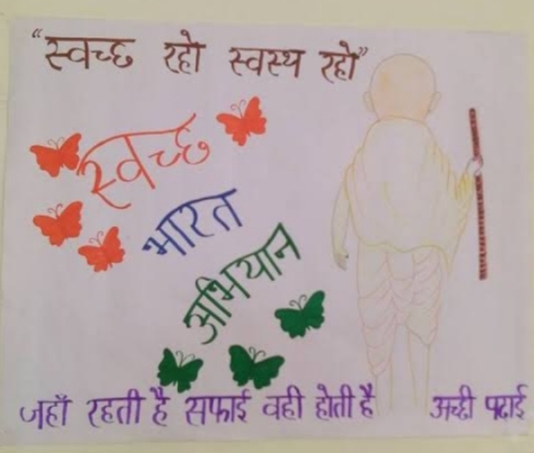 “स्वच्छ रहो स्वस्थ रहो”
स्वच्छ
भारत
अभियान
जहाँ रहती है सफाई वही होती है अच्छी पढाई